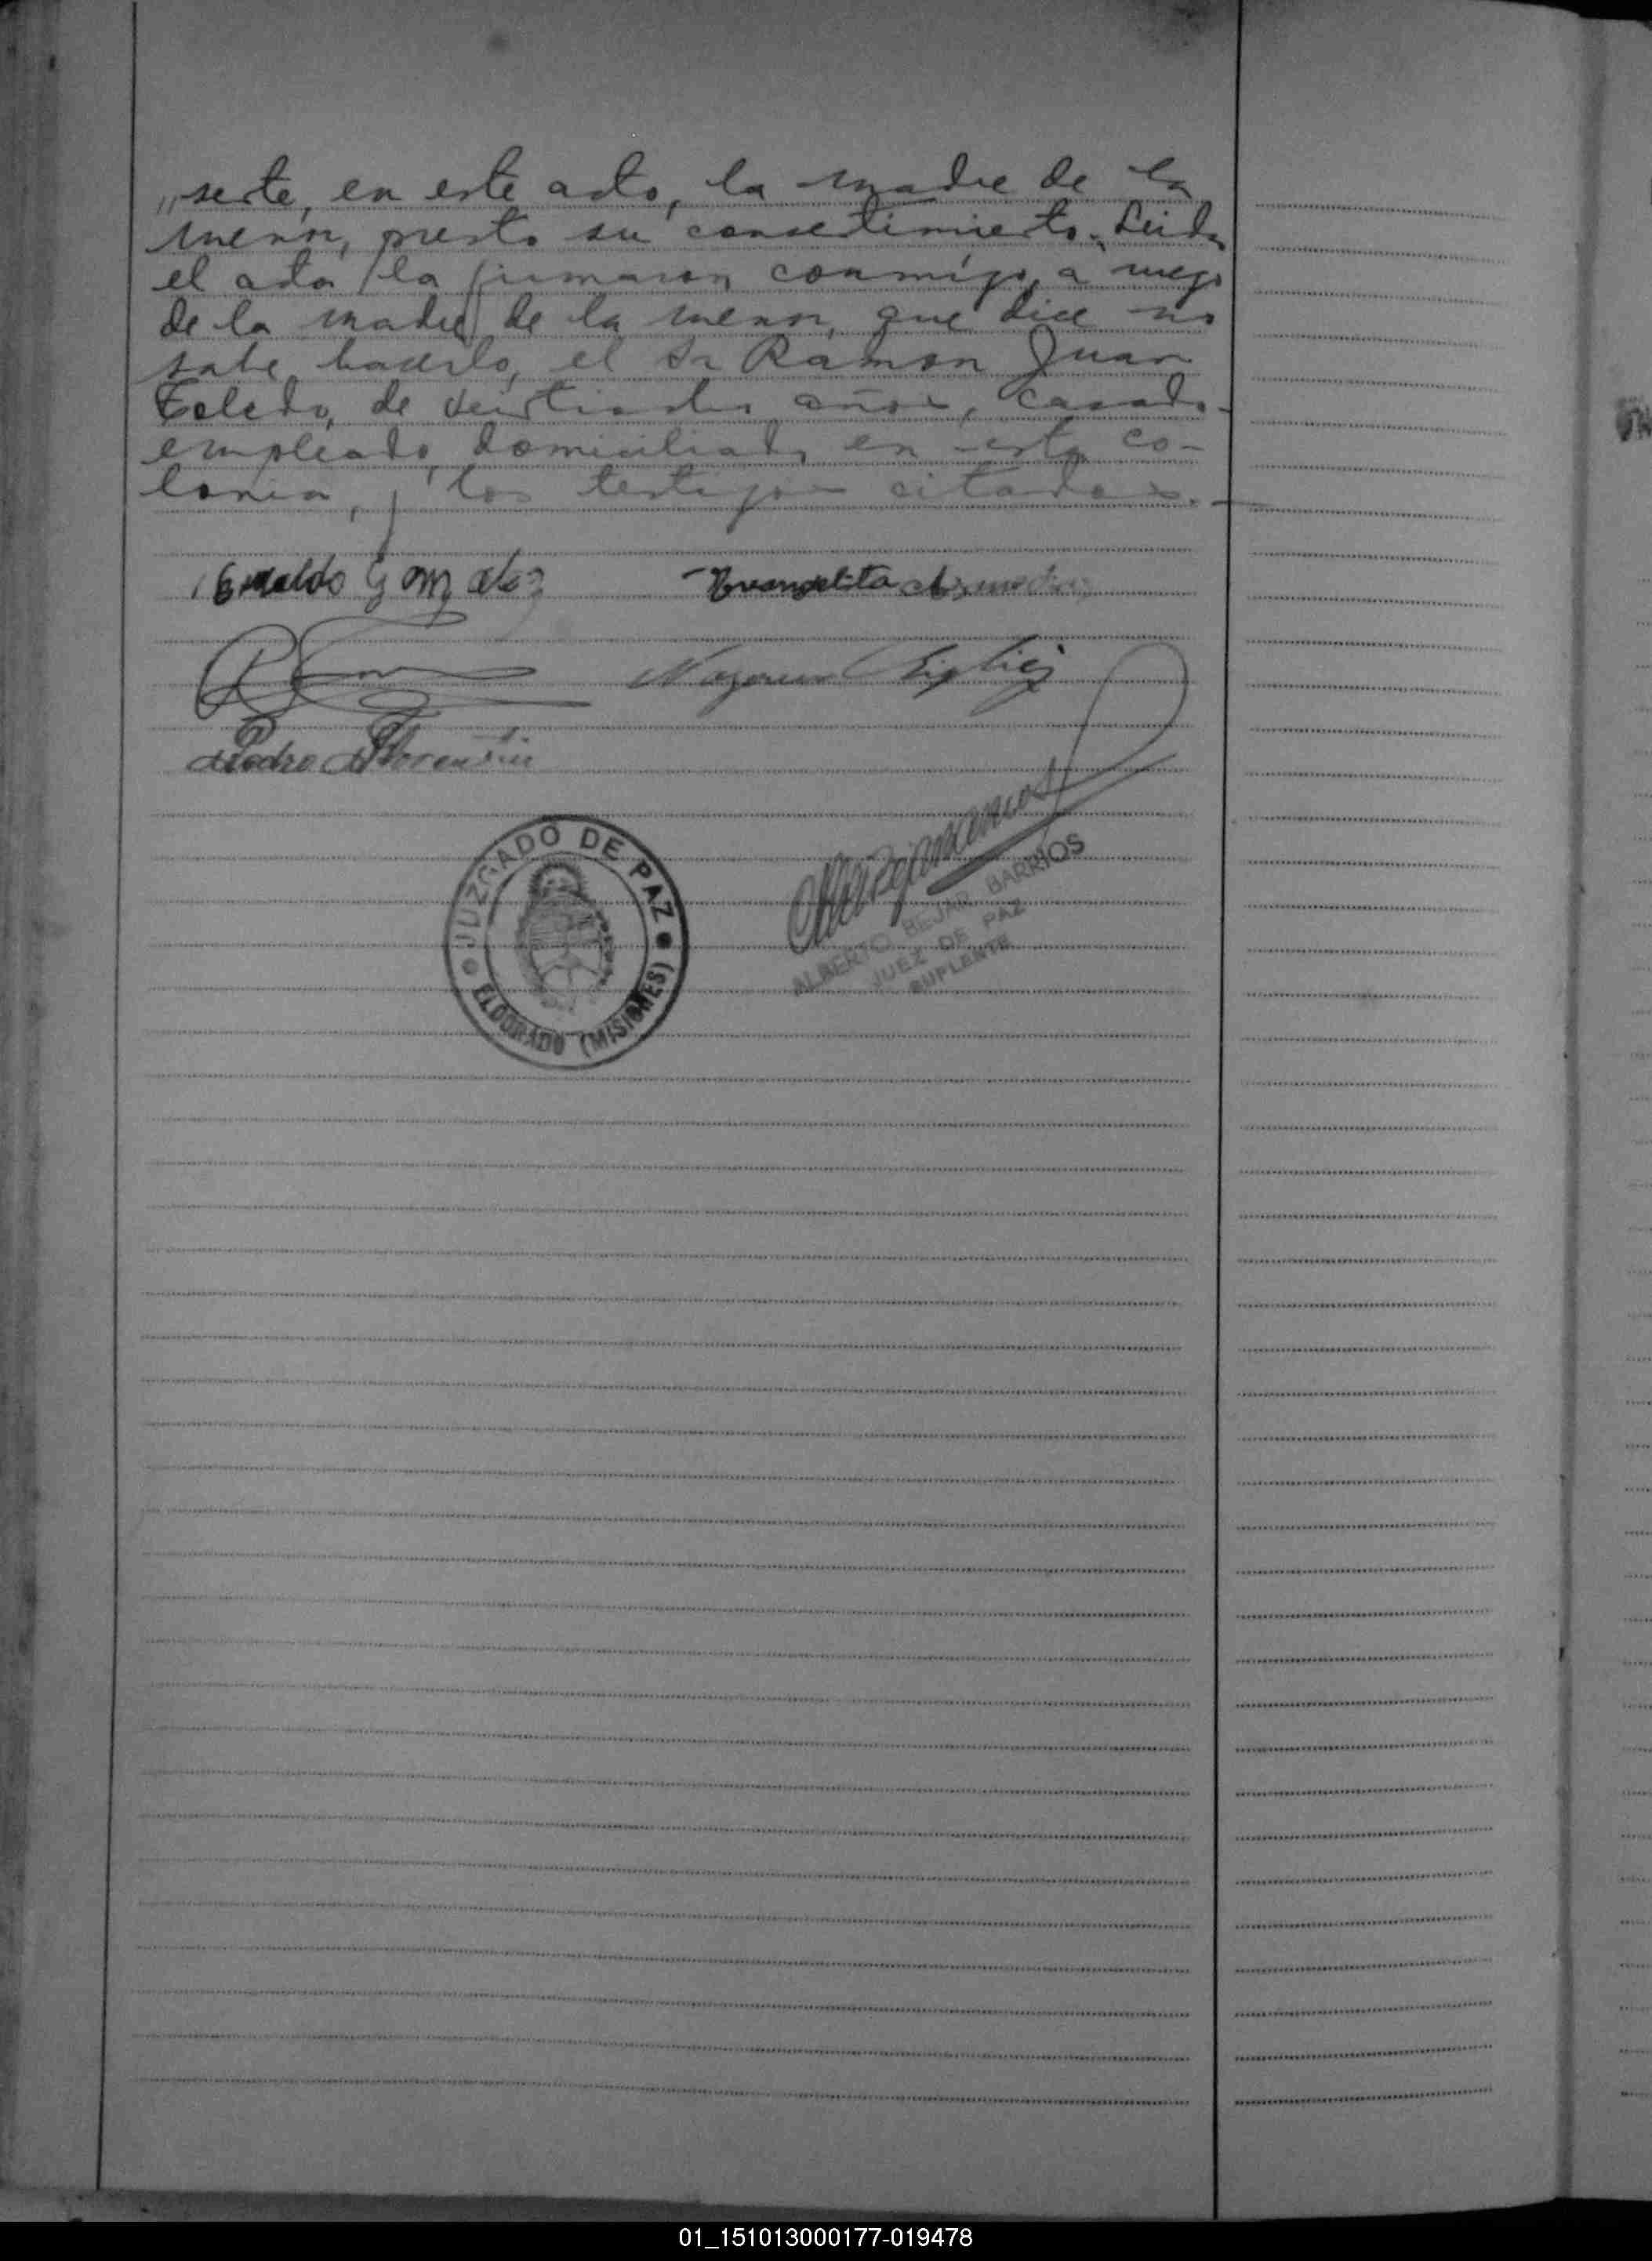 "sente, en este acto, la madre de la
menor, presto su consentimiento. Leida
el acta la firmaron conmigo, a ruego
de la madre de la menor, que dice no
sabe hacerlo, el Sr Ramon Juan
Toledo, de años, casado
empleado, domiciliado en esta co-
lonia, y los testigos citados.-
Gonzalez Evangelita
Pedro Florentin
JUZGADO DE PAZ
ELDORADO (MISIONES)
ALBERTO BEJAR BARRIOS
JUEZ DE PAZ
SUPLENTE
01_151013000177-019478